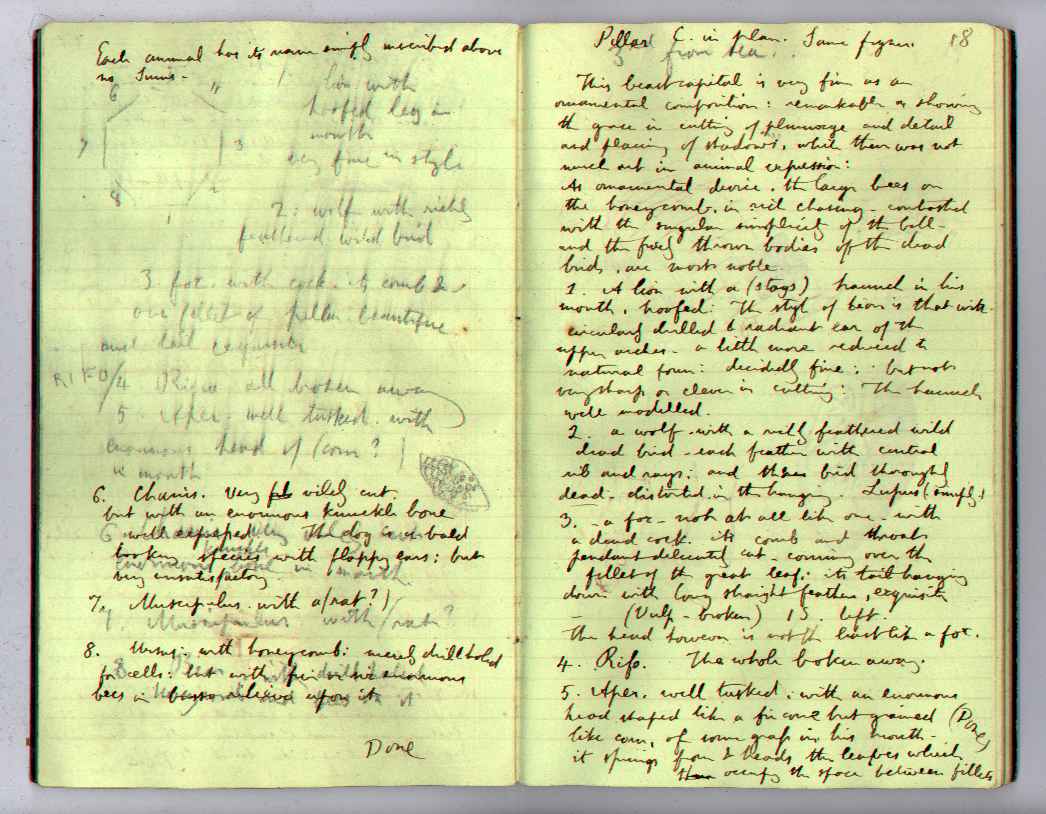 Each animal has its name simply inscribed above
no Sum's -
1 lion with
hoofed leg in
mouth
very fine in style
6
7
3
8
2
1
2. wolf with richly
feathered wild bird
3. fox. with cock. its comb &
over fillet of pillar beautiful
and tail exquisite
4. all broken away
5. Aper. well tusked. with
enormous head of (corn?)
in mouth
6. Chanis. very wildly cut.
but with an enormous knuckle bone
well expressed The dog is a bald
looking species with flappy ears: but
very unsatisfactory.
7. Muscipulus. with a (rat?)
7. Muscipulus with (rat?
8. Ursus. with honeycomb: merely drill holed
for cells: but with five or six enormous
bees in basso relievo upon it
Done
Pillar C. in plan. Same from
from sea.
18
This beast capital is very fine as an
ornamental composition: remarkable as showing
the grace in cutting of plumage and detail
and placing of shadows, while there was not
much art in animal expression:
As ornamental device. the large bees on
the honeycomb, in rich chasing - contrasted
with the singular simplicity of the bell -
and the freely thrown bodies of the dead
birds, are most noble.
1. A lion with a (stags) haunch in his
mouth, hoofed. The style of lion is that with
circularly drilled & radiant ear of the
upper arches - a little more reduced to
natural form: decidedly fine: but not
very sharp or clever in cutting: The haunch
well modelled.
2. a wolf - with a richly feathered wild
dead bird - each feather with central
rib and rays: and the bird thoroughly
dead - distorted in the hanging Lupus (simply)
3. - a fox - not at all like one - with
a dead cock. its comb and throat
pendant delicately cut - coming over the
fillet of the great leaf: its tail hanging
down with long straight feather, exquisite
- (Vulp - broken) 15 left.
The head however is not the least like a fox.
4. The whole broken away.
5. Aper. well tusked: with an enormous
head shaped like a fir cone but grained (Done)
like corn, of some grass in his mouth -
it springs from & heads the leaves which
occupy the space between fillets